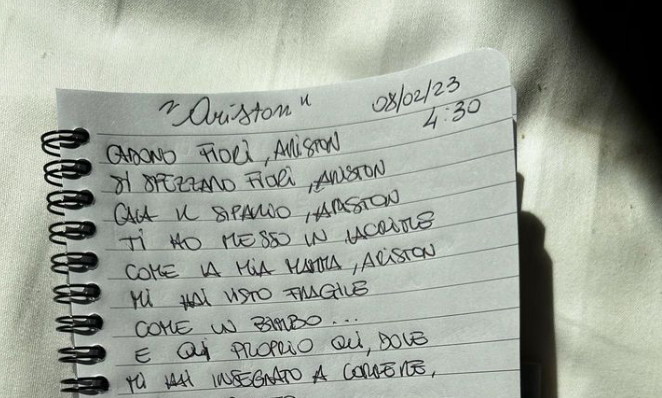 "Ariston" 08/02/23
4:30
CADONO FIORI, ARISTON
SI SPEZZANO FIORI, ARISTON
CALA IL SIPARIO, ARISTON
TI HO MESSO IN LACRIME
COME LA MIA MAMMA, ARISTON
MI HAI VISTO FRAGILE
COME UN BIMBO...
E QUI PROPRIO QUI, DOVE
MI HAI INSEGNATO A CORRERE,